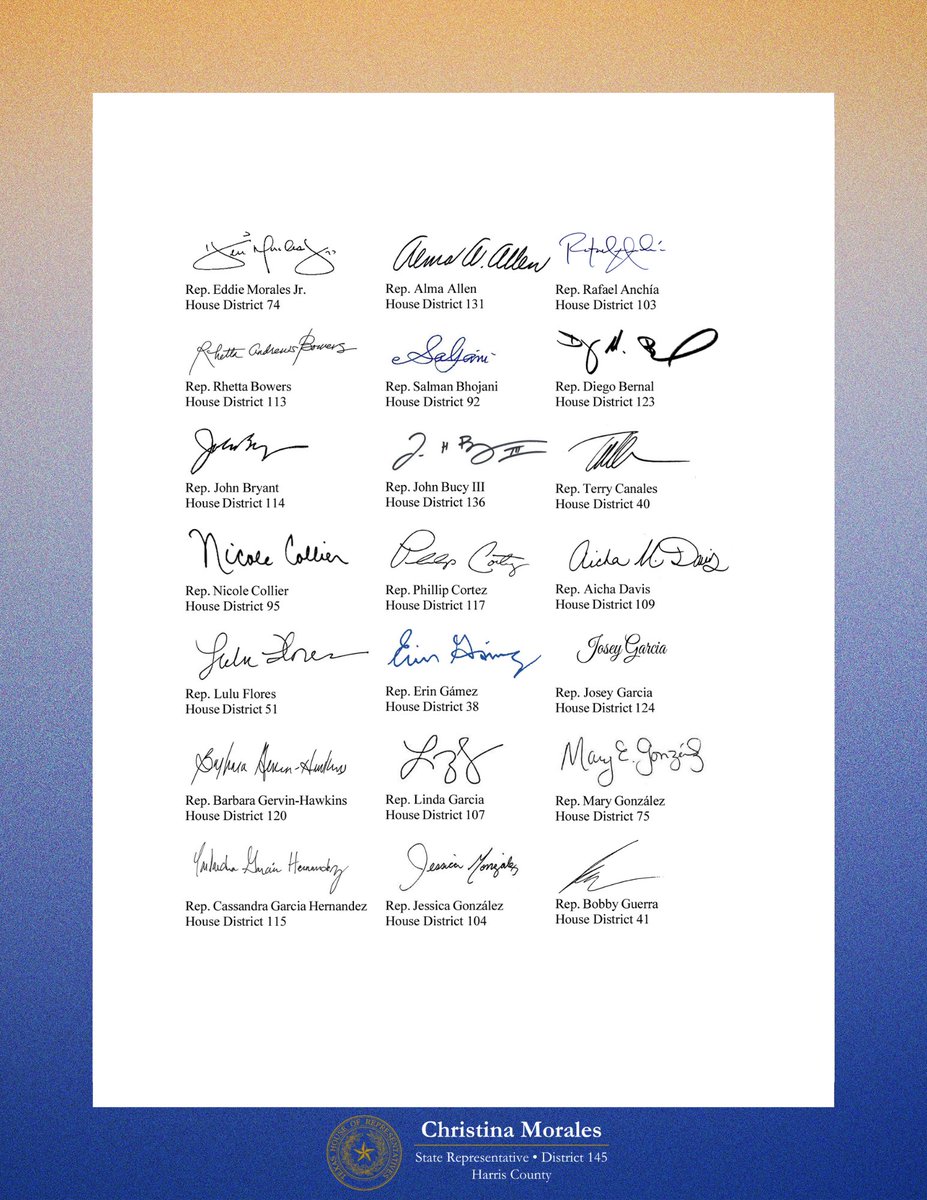 Rep. Eddie Morales Jr.
House District 74
Alma A. Allen
Rep. Alma Allen
House District 131
Rep. Rafael Anchía
House District 103
Rhetta Andrews Bowers
Rep. Rhetta Bowers
House District 113
Rep. Salman Bhojani
House District 92
Rep. Diego Bernal
House District 123
Rep. John Bryant
House District 114
Rep. John Bucy III
House District 136
Rep. Terry Canales
House District 40
Nicole Collier
Rep. Nicole Collier
House District 95
Rep. Phillip Cortez
House District 117
Aicha M. Davis
Rep. Aicha Davis
House District 109
Lulu Flores
Rep. Lulu Flores
House District 51
Erin Gámez
Rep. Erin Gámez
House District 38
Josey Garcia
Rep. Josey Garcia
House District 124
Barbara Gervin-Hawkins
Rep. Barbara Gervin-Hawkins
House District 120
Rep. Linda Garcia
House District 107
Mary E. González
Rep. Mary González
House District 75
Rep. Cassandra Garcia Hernandez
House District 115
Jessica González
Rep. Jessica González
House District 104
Rep. Bobby Guerra
House District 41
TEXAS HOUSE OF REPRESENTATIVES
Christina Morales
State Representative • District 145
Harris County